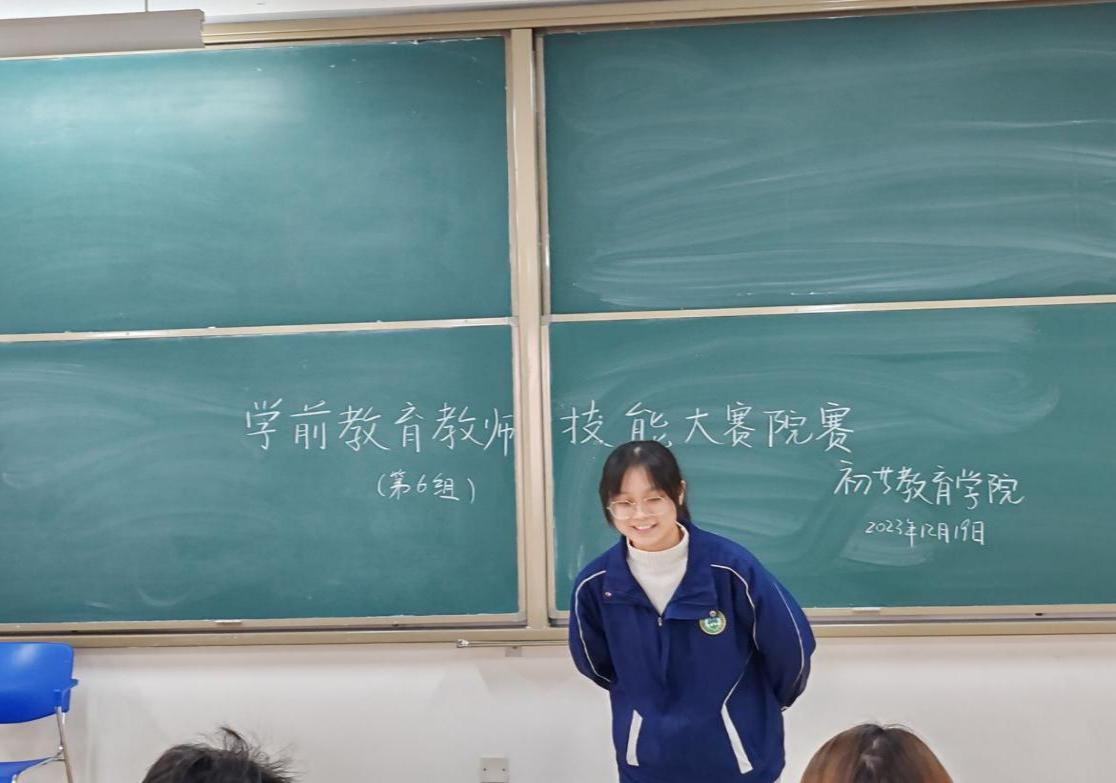 学前教育教师技能大赛院赛
(第6组)
初等教育学院
2023年12月19日